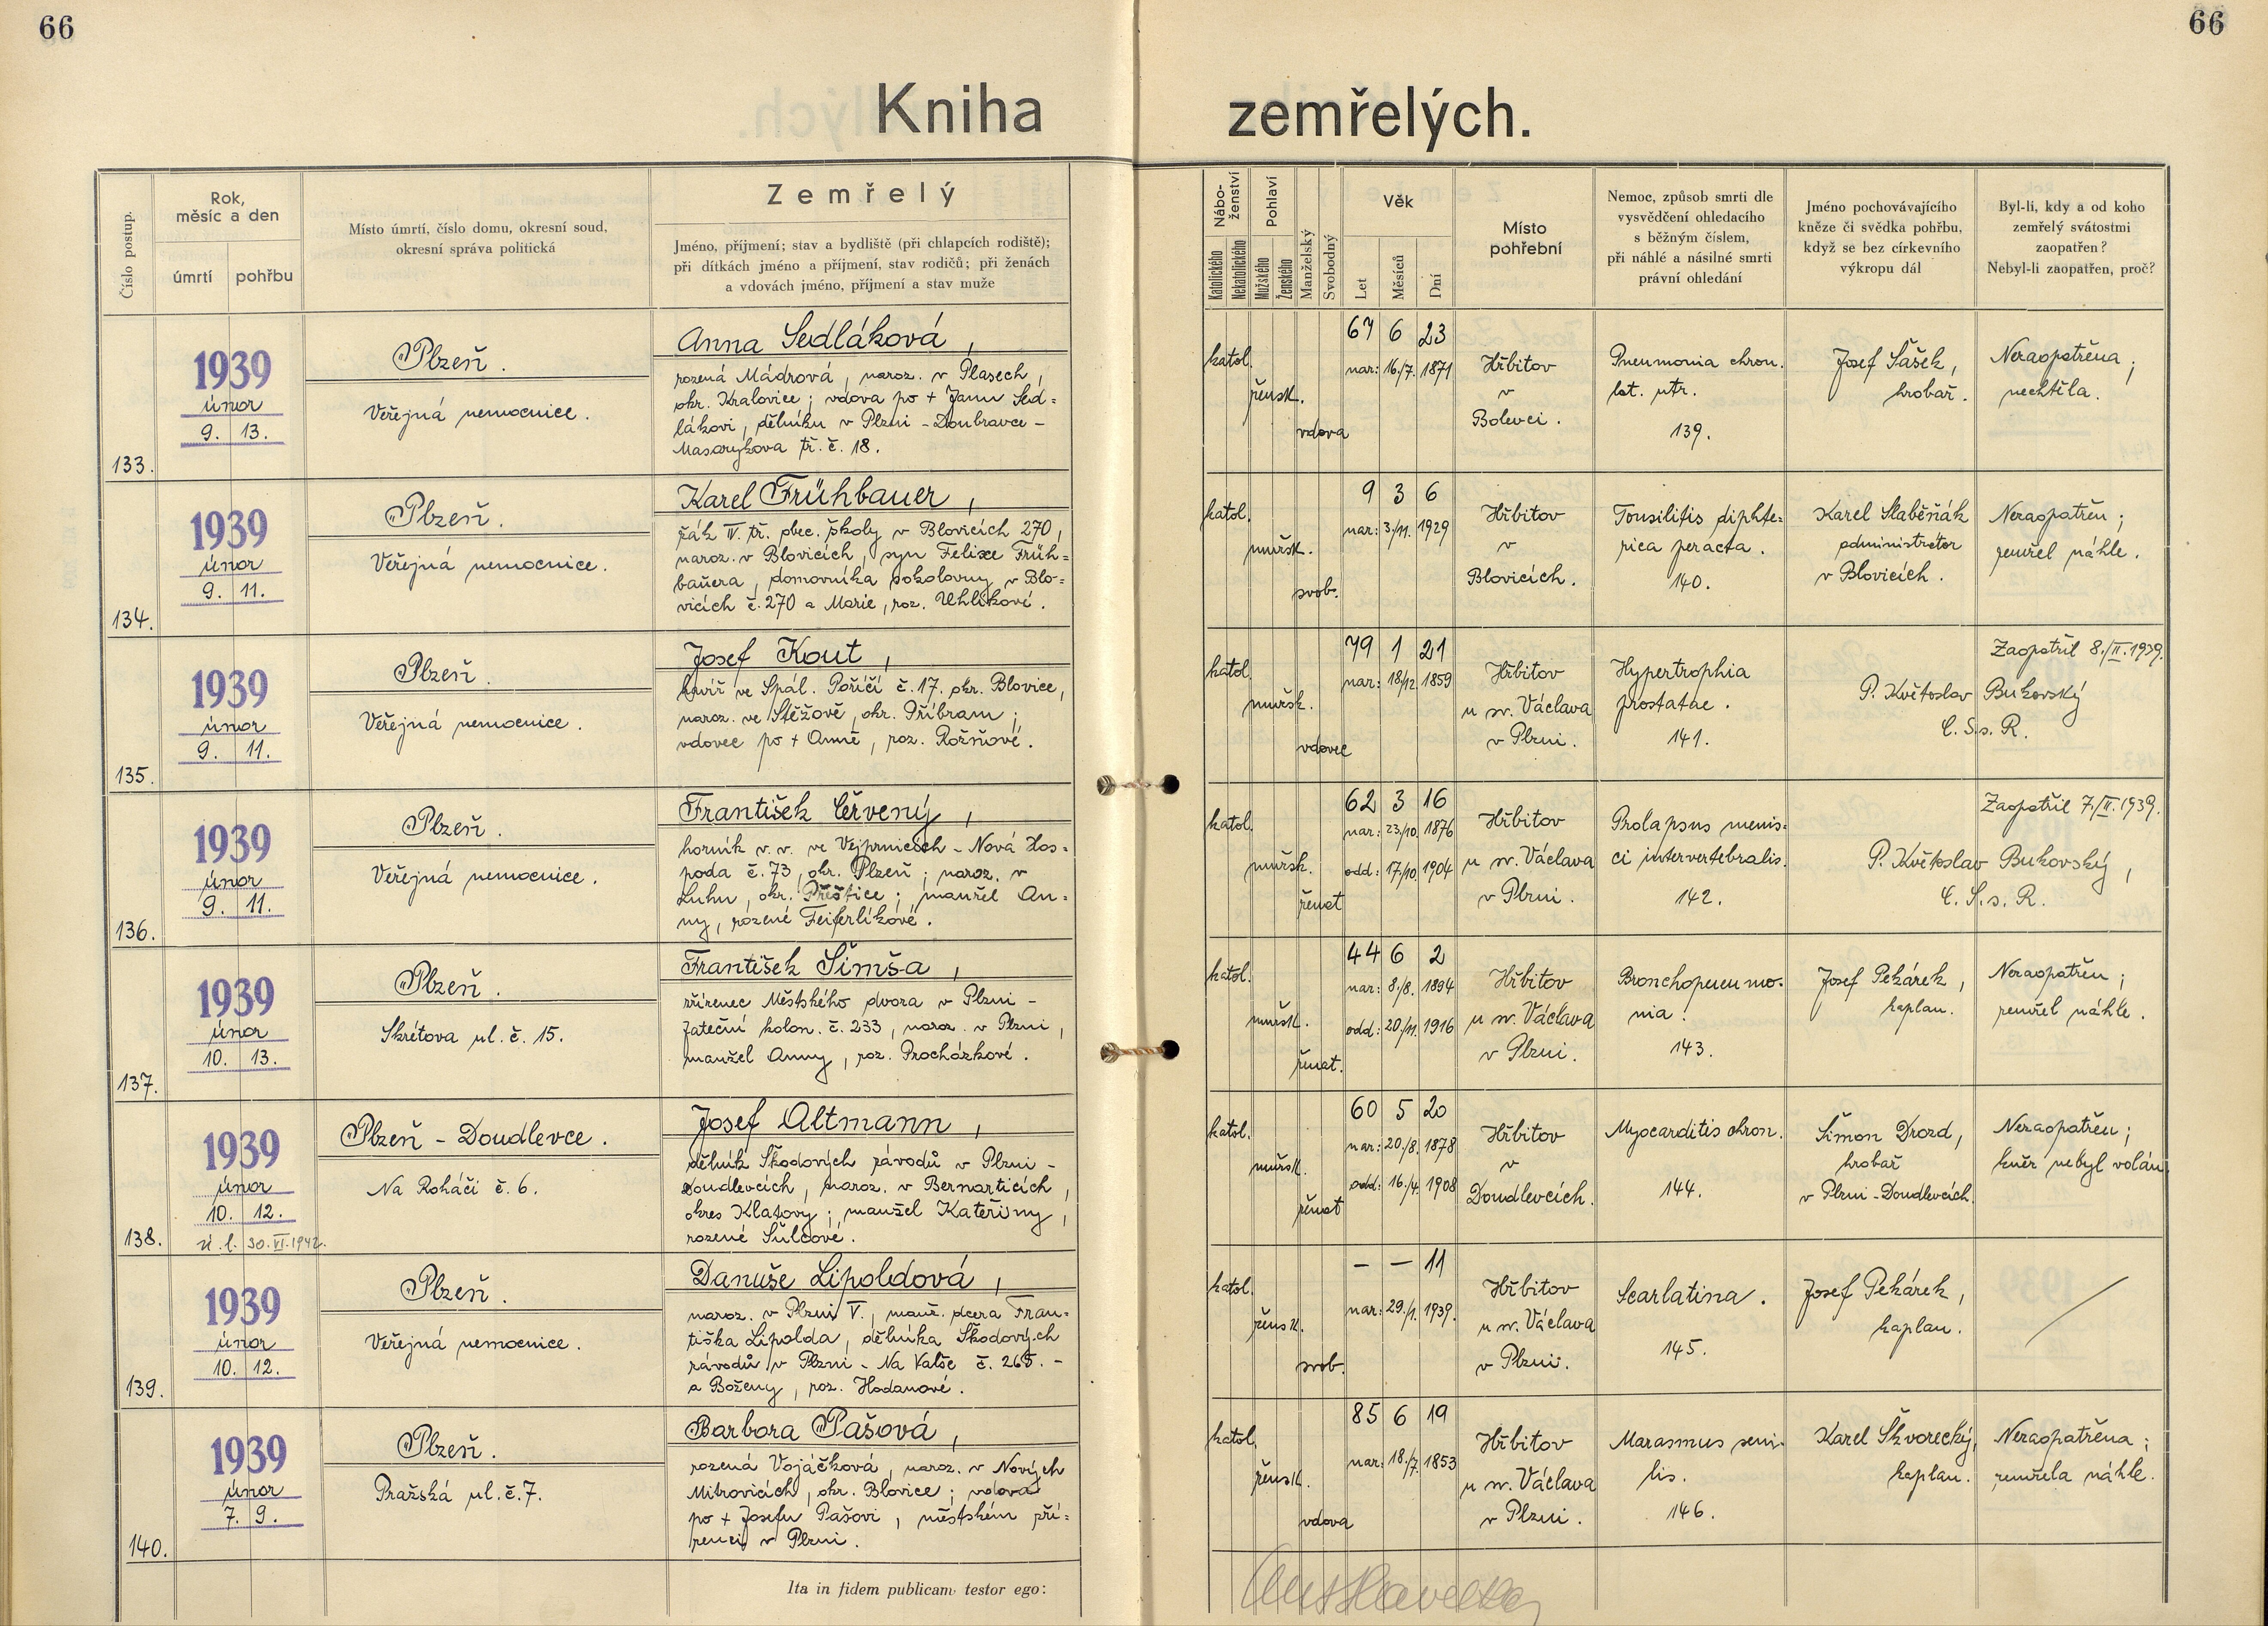 66
66
Kniha zemřelých.
Číslo postup.
Rok,
měsíc a den
úmrtí
pohřbu
Místo úmrtí, číslo domu, okresní soud,
okresní správa politická
Zemřelý
Jméno, příjmení; stav a bydliště (při chlapcích rodiště);
při dítkách jméno a příjmení, stav rodičů; při ženách
a vdovách jméno, příjmení a stav muže
Nábo-
ženství
Katolického
Nekatolického
Pohlaví
Mužského
Ženského
Manželský
Svobodný
Věk
Let
Měsíců
Dní
Místo
pohřební
Nemoc, způsob smrti dle
vysvědčení ohledacího
s běžným číslem,
při náhlé a násilné smrti
právní ohledání
Jméno pochovávajícího
kněze či svědka pohřbu,
když se bez církevního
výkropu dál
Byl-li, kdy a od koho
zemřelý svátostmi
zaopatřen?
Nebyl-li zaopatřen, proč?
133.
1939
únor
9. 13.
Plzeň.
Veřejná nemocnice.
Anna Sedláková,
rozená Mádrová, naroz. v Plasech,
okr. Kralovice; vdova po + Janu Sed=
lákovi, dělníku v Plzni - Doubravce -
Masarykova tř. č. 18.
katol.
žensk.
vdova
67 6 23
nar: 16./7. 1871
Hřbitov
v
Bolevci.
Pneumonia chron.
lat. utr.
139.
Josef Šašek,
hrobař.
Nezaopatřena;
nechtěla.
134.
1939
únor
9. 11.
Plzeň.
Veřejná nemocnice.
Karel Frühbauer,
žák IV. tř. obec. školy v Blovicích 270,
naroz. v Blovicích, syn Felixe Früh=
bauera, domovníka sokolovny v Blo=
vicích č. 270 a Marie, roz. Uhlíkové.
katol.
mužsk.
svob.
9 3 6
nar: 3./11. 1929
Hřbitov
v
Blovicích.
Tonsilitis diphte=
rica peracta.
140.
Karel Slaběňák
administrátor
v Blovicích.
Nezaopatřen;
zemřel náhle.
135.
1939
únor
9. 11.
Plzeň.
Veřejná nemocnice.
Josef Kout,
kovář ve Spál. Poříčí č. 17. okr. Blovice,
naroz. ve Stěžově, okr. Příbram;
vdovec po + Anně, roz. Rožňové.
katol.
mužsk.
vdovec
79 1 21
nar: 18/12. 1859
Hřbitov
u sv. Václava
v Plzni.
Hypertrophia
prostatae.
141.
Zaopatřil 8./II. 1939.
P. Květoslav Bukovský
C. Ss. R.
136.
1939
únor
9. 11.
Plzeň.
Veřejná nemocnice.
František Červený,
horník v. v. ve Vejprnicech - Nová Hos=
poda č. 73, okr. Plzeň; naroz. v
Luhu, okr. Přeštice; manžel An=
ny, rozené Feiferlíkové.
katol.
mužsk.
ženat
62 3 16
nar: 23/10. 1876
odd: 17/10. 1904
Hřbitov
u sv. Václava
v Plzni.
Prolapsus menis=
ci intervertebralis.
142.
Zaopatřil 7./II. 1939.
P. Květoslav Bukovský,
C. S.s. R.
137.
1939
únor
10. 13.
Plzeň.
Skrétova ul. č. 15.
František Šimša,
zřízenec Městského dvora v Plzni -
Zateční kolon. č. 233, naroz. v Plzni,
manžel Anny, roz. Procházkové.
katol.
mužsk.
ženat.
44 6 2
nar: 8./8. 1894
odd: 20./11. 1916
Hřbitov
u sv. Václava
v Plzni.
Bronchopneumo-
nia!
143.
Josef Pekárek,
kaplan.
Nezaopatřen;
zemřel náhle.
138.
1939
únor
10. 12.
30. VI. 1942.
Plzeň - Doudlevce.
Na Roháči č. 6.
Josef Altmann,
dělník Škodových závodů v Plzni -
Doudlevcích, naroz. v Bernarticích,
okres Klatovy; manžel Kateřiny,
rozené Šulcové.
katol.
mužsk.
ženat
60 5 20
nar: 20./8. 1878
odd: 16./4. 1908
Hřbitov
v
Doudlevcích.
Myocarditis chron.
144.
Šimon Drozd,
hrobař
v Plzni - Doudlevcích.
Nezaopatřen;
kněz nebyl volán
139.
1939
únor
10. 12.
Plzeň.
Veřejná nemocnice.
Danuše Lipoldová,
naroz. v Plzni V., manž. dcera Fran=
tiška Lipolda, dělníka Škodových
závodů v Plzni - Na Valše č. 265. -
a Boženy, roz. Hodanové.
katol.
žensk.
svob.
- - 11
nar: 29./1. 1939.
Hřbitov
u sv. Václava
v Plzni.
Scarlatina.
145.
Josef Pekárek,
kaplan.
140.
1939
únor
7. 9.
Plzeň.
Pražská ul. č. 7.
Barbora Pašová,
rozená Vojáčková, naroz. v Nových
Mitrovicích, okr. Blovice; vdova
po + Josefu Pašovi, městském zří=
zenci v Plzni.
katol.
žensk.
vdova
85 6 19
nar: 18./7. 1853
Hřbitov
u sv. Václava
v Plzni.
Marasmus seni-
lis.
146.
Karel Škvorecký,
kaplan.
Nezaopatřena;
zemřela náhle.
Ita in fidem publicam testor ego: